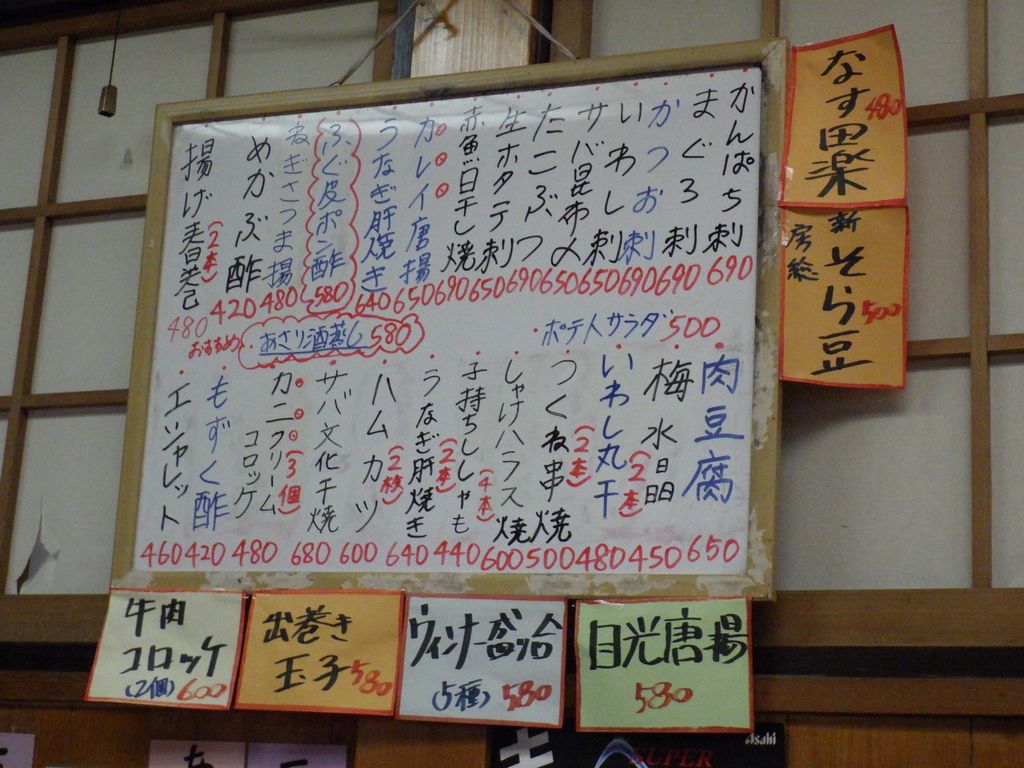 かんぱち刺 690
まぐろ刺 690
かつお刺 690
いわし刺 650
サバ昆布〆 650
たこぶつ 690
生ホタテ刺 650
赤魚一日干し焼 690
カレイ唐揚 650
うなぎ肝焼き 640
ふぐ皮ポン酢 580
ねぎさつま揚 480
めかぶ酢 420
揚げ春巻 (2本) 480
ポテトサラダ 500
おすすめ あさり酒蒸し 580
肉豆腐 650
梅水晶 450
いわし丸干 (2本) 480
つくね串焼 (2本) 500
しゃけハラス焼 600
子持ちししゃも (4本) 440
うなぎ肝焼き (2本) 640
ハムカツ (2枚) 600
サバ文化干焼 680
カニクリームコロッケ (3個) 480
もずく酢 420
エシャレット 460
なす田楽 480
新そら豆 房総 500
牛肉
コロッケ
(2個) 600
出巻き
玉子 580
ウィンナー盛合
(5種) 580
目光唐揚
580
SUPER
Asahi